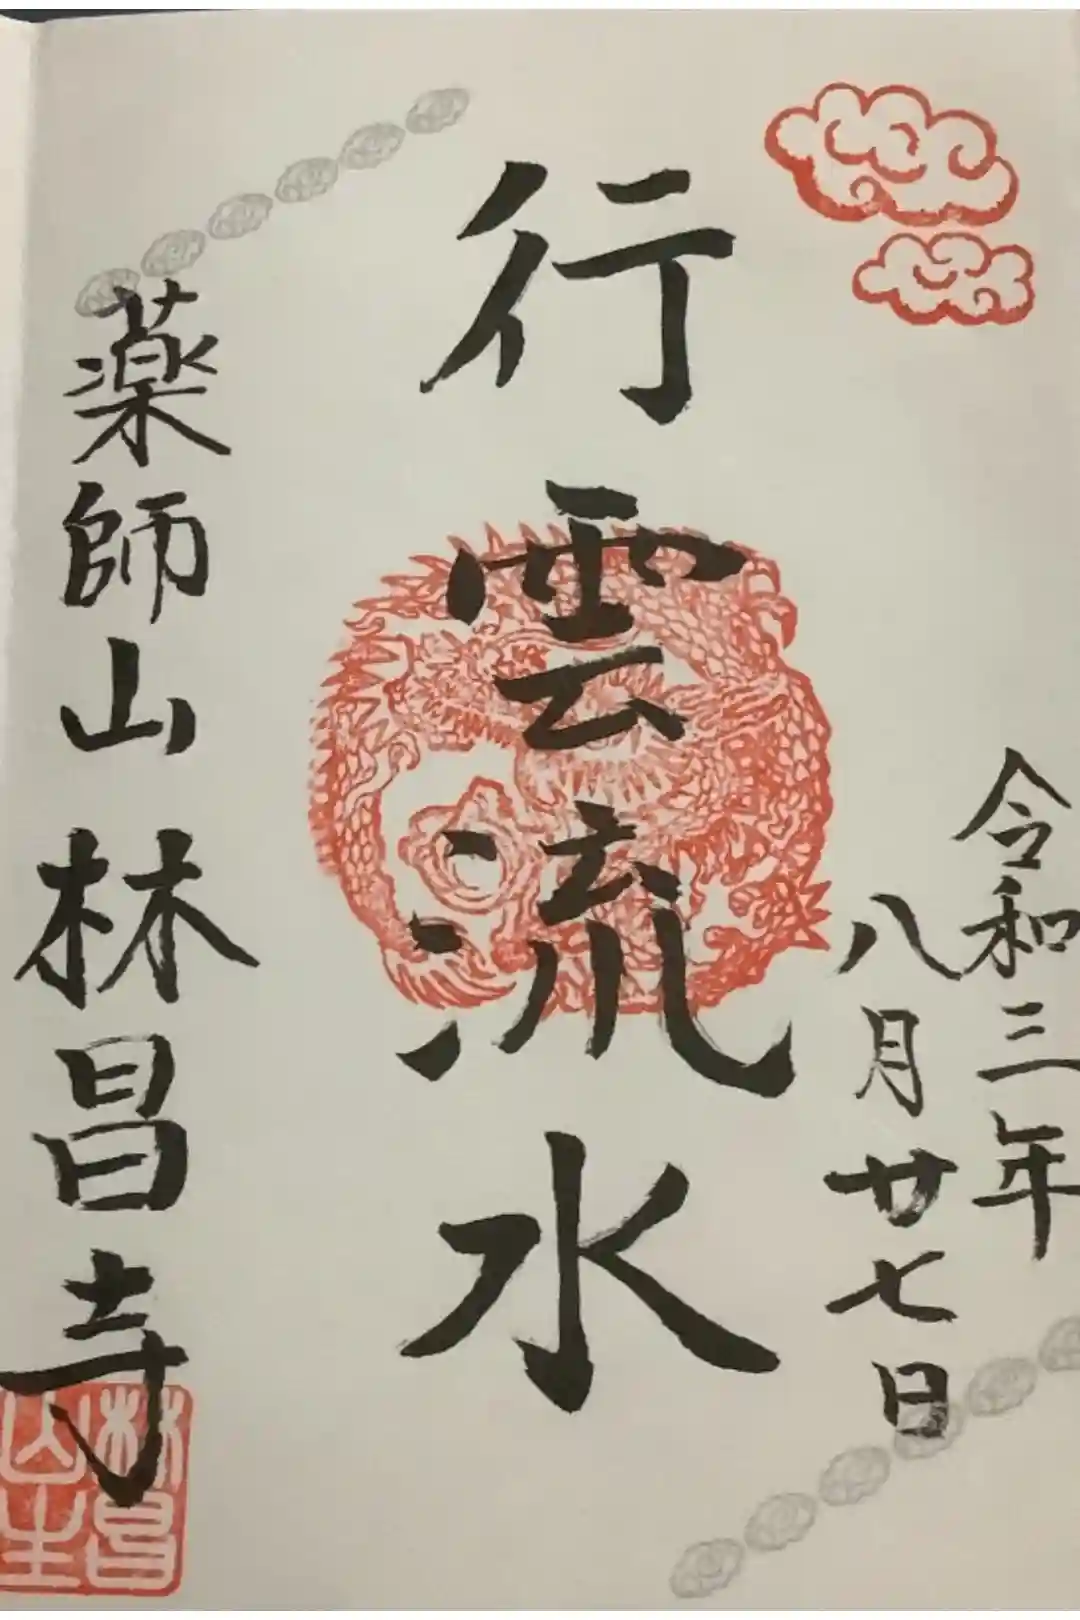 令和三年
八月廿七日
行雲流水
薬師山林昌寺
林昌
山主